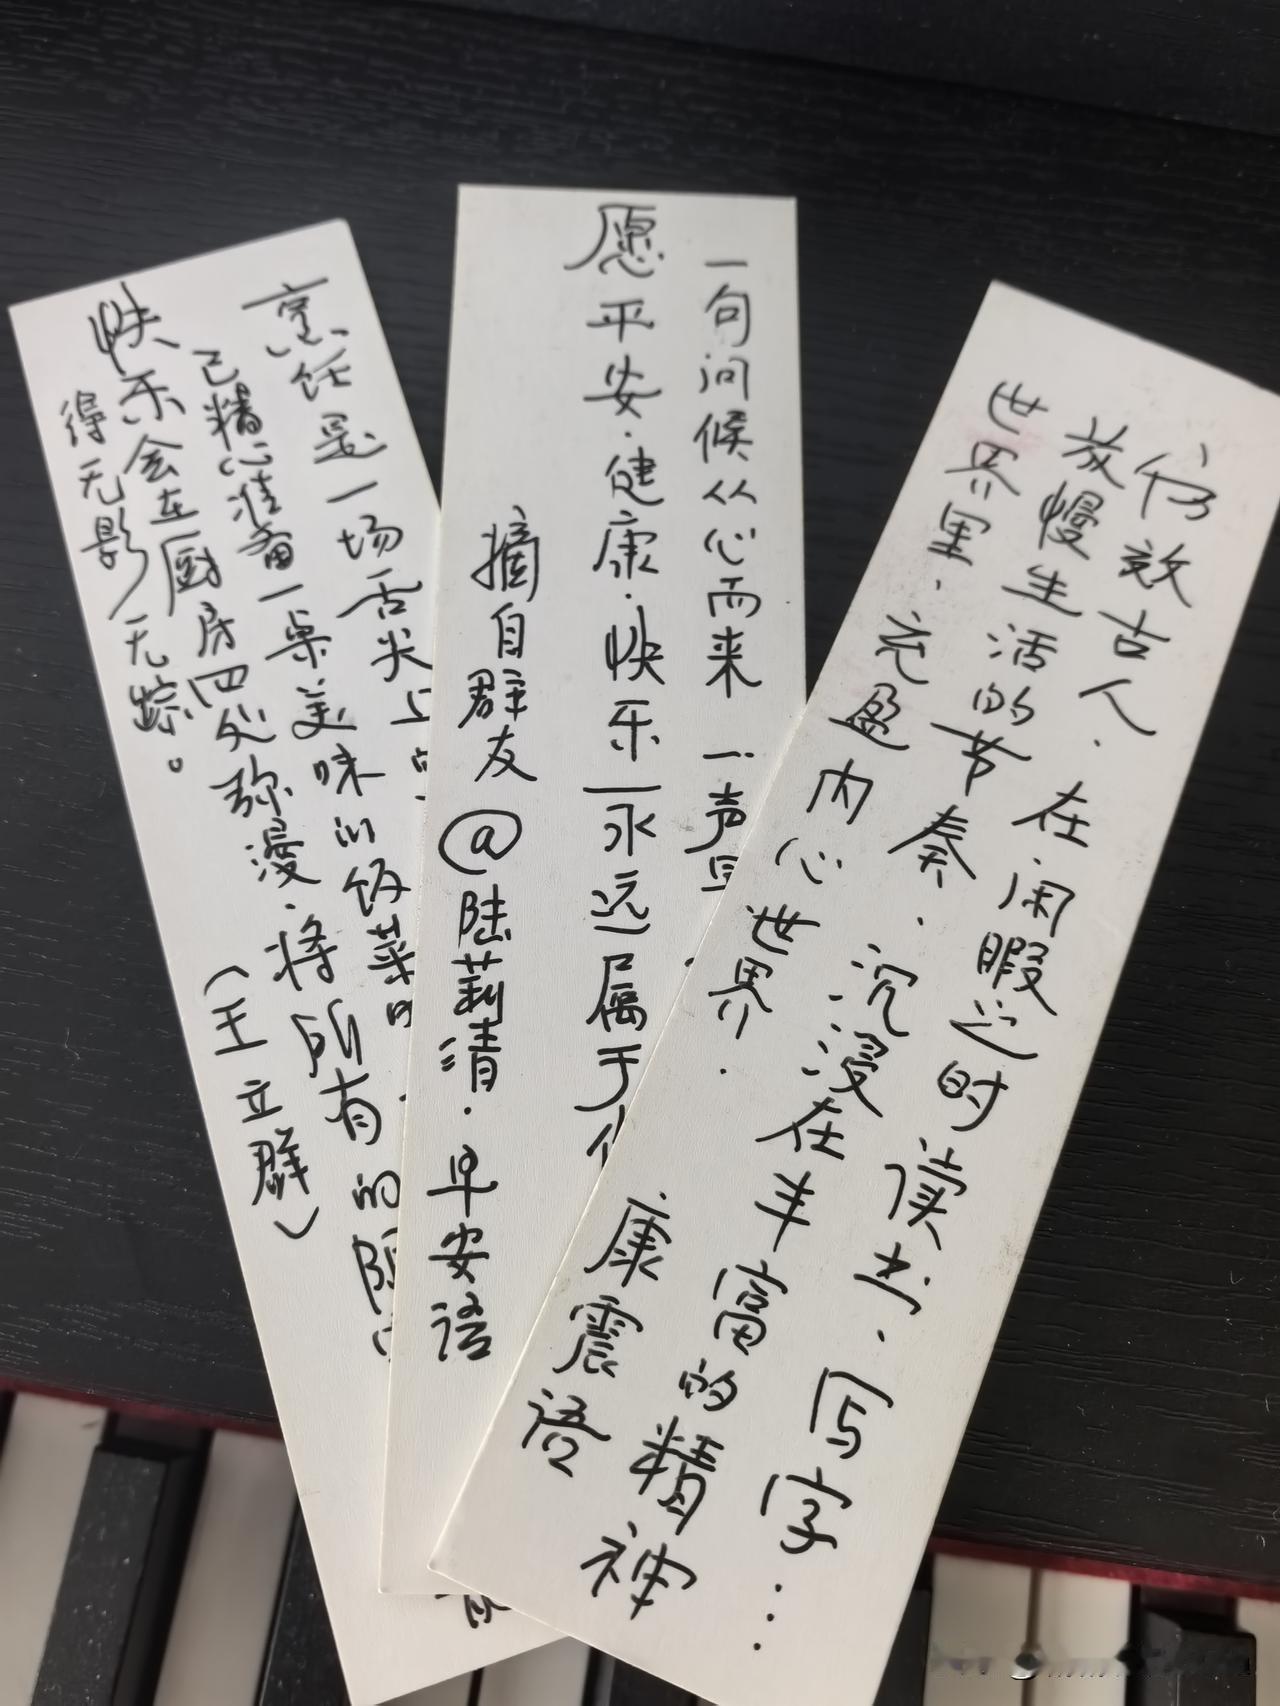 仿效古人.在闲暇之时读书.写字…
放慢生活的节奏.沉浸在丰富的精神
世界里.充盈内心世界.
康震语
一句问候从心而来 一声早
愿平安.健康.快乐永远属于
摘自群友@陆莉清.早安语
烹饪是一场舌尖上
己精心准备一桌美味的饭菜
快乐会在厨房四处弥漫.将所有的阴
得无影无踪。
(王立群)